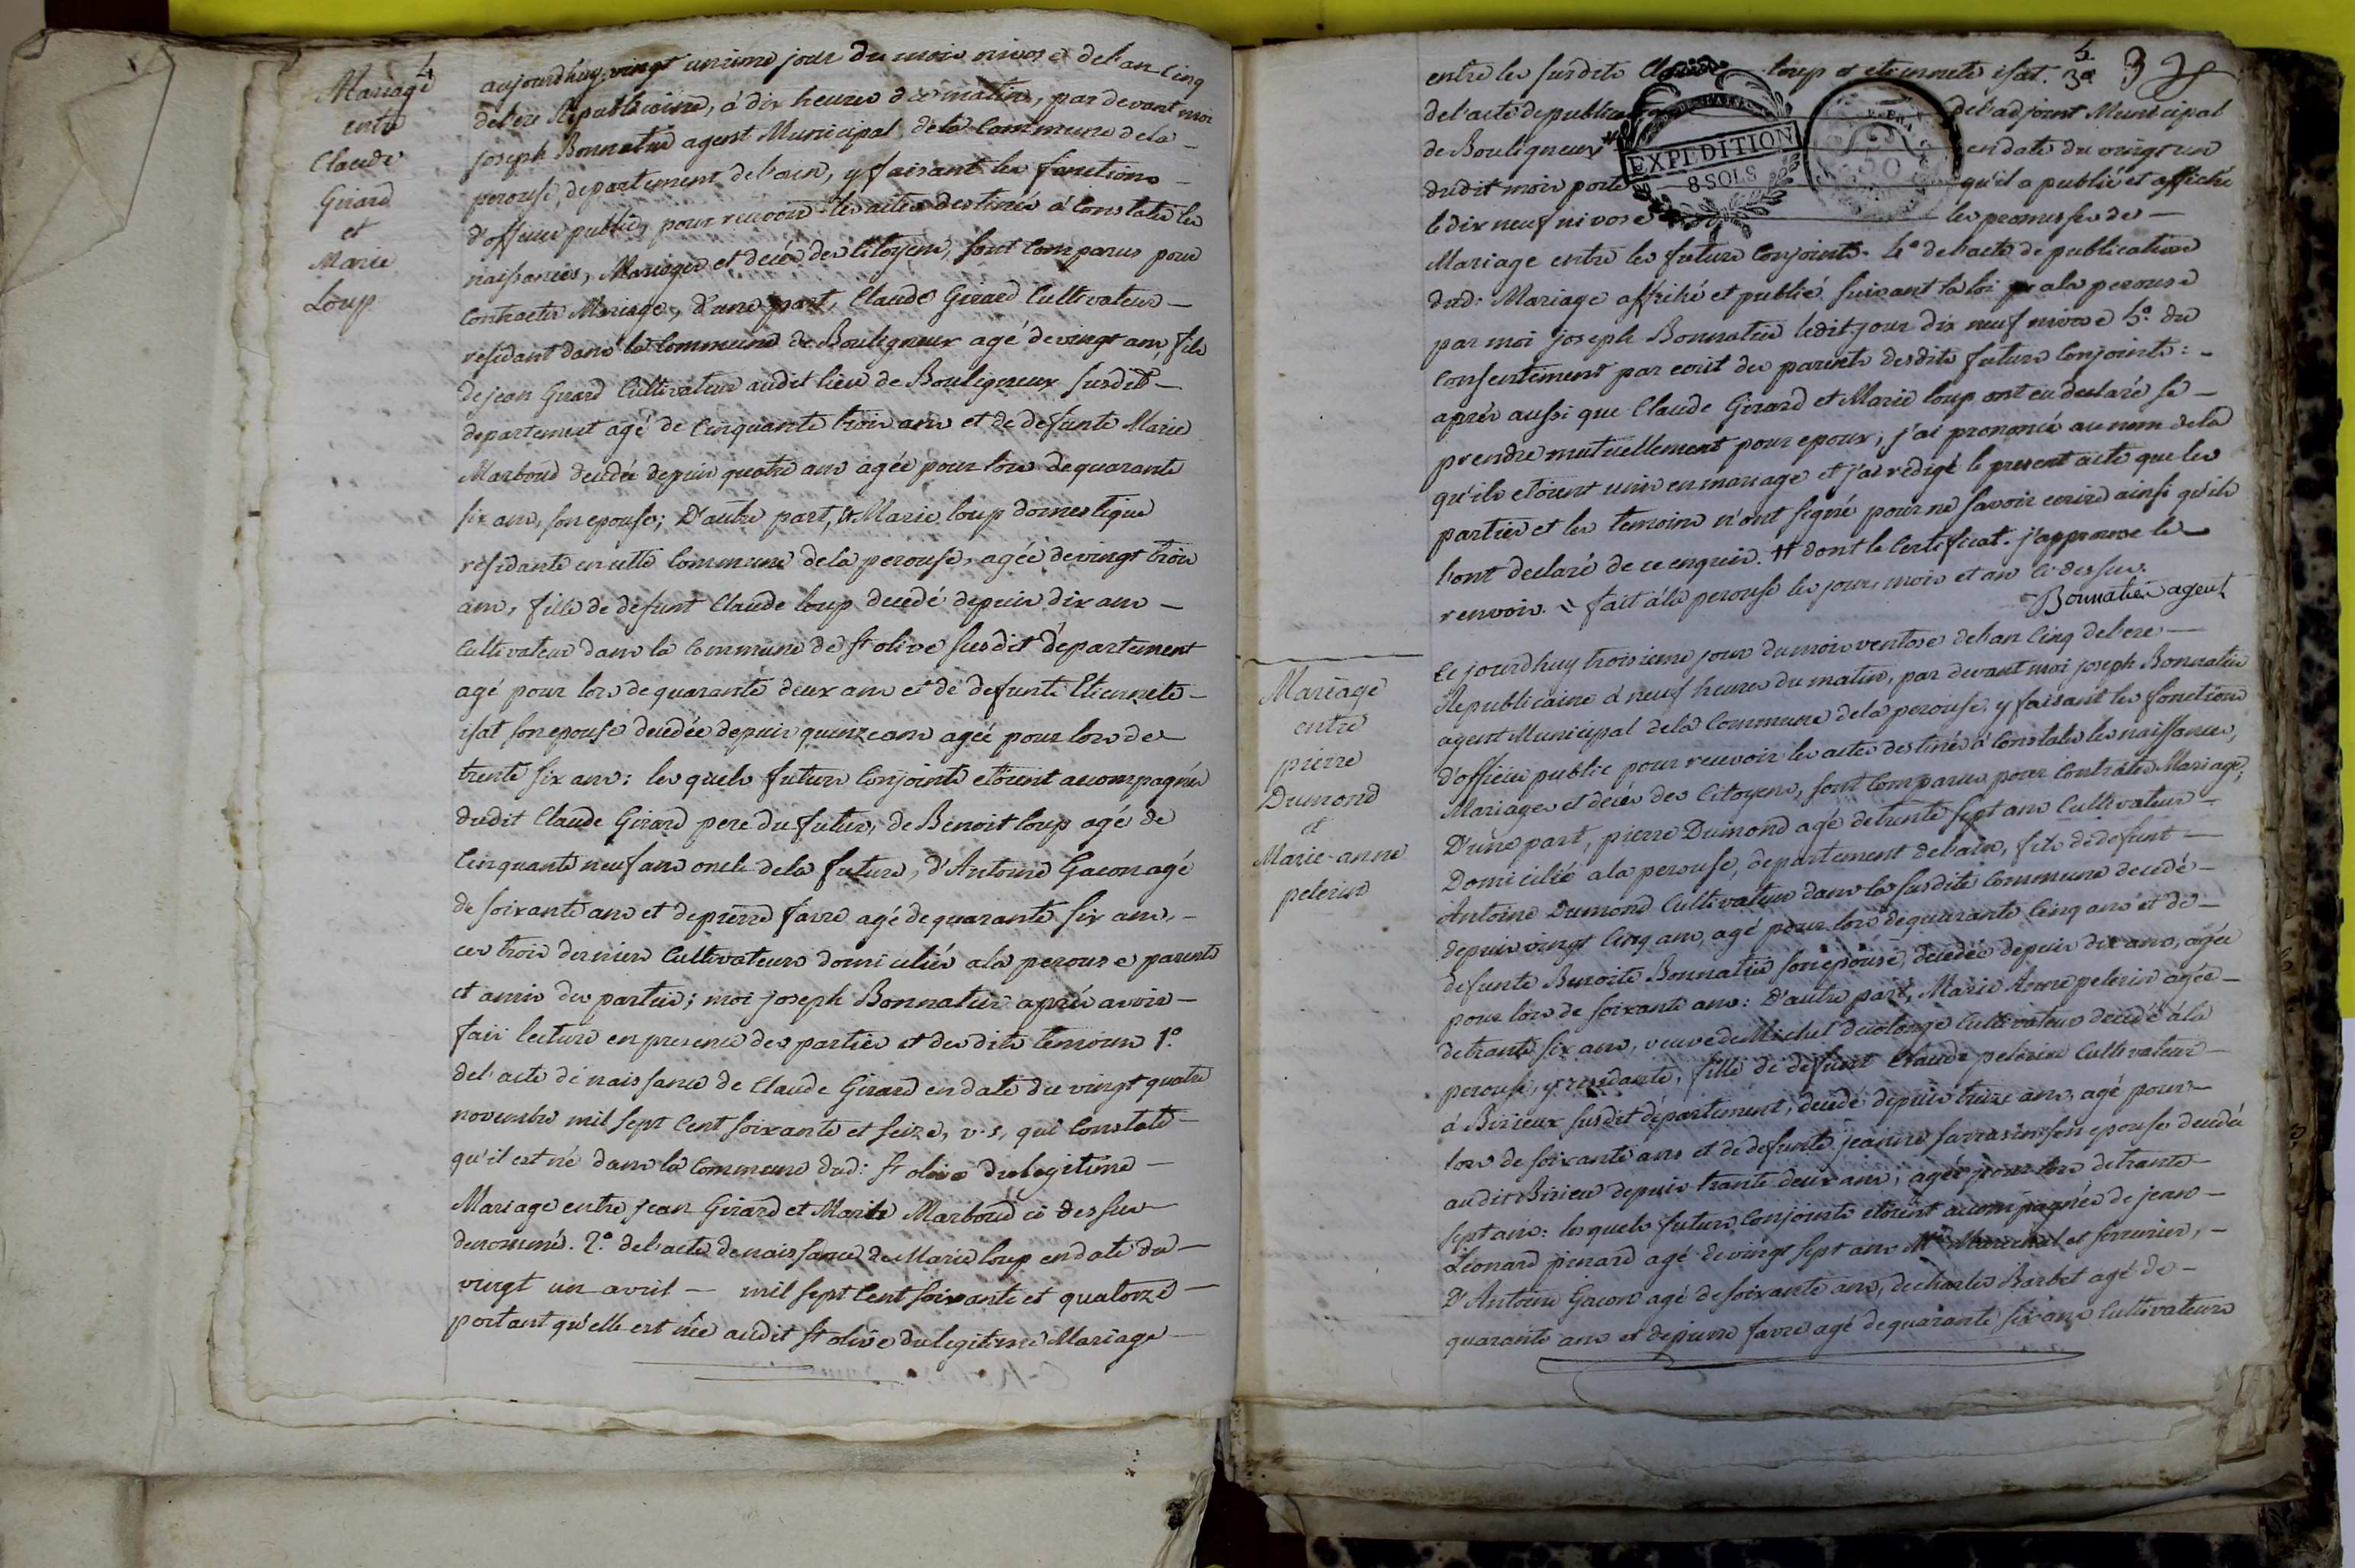 4
Mariage
entre
Claude
Girard
et
Marie
Loup
aujourdhuy vingt unieme jour du mois nivose de l'an cinq
de l'ere Republicaine, à dix heures du matin, par devant moi
joseph Bonnatier agent Municipal de la Commune de la
perouse, departement de l'ain, y faisant les fonctions
d'officier public, pour recevoir les actes destinés à Constater les
naissances, Mariages et decés des Citoyens, sont Comparus pour
Contracter Mariage, d'une part, Claude Girard Cultivateur
residant dans la Commune de Bouligneux agé de vingt ans, fils
de jean Girard Cultivateur audit lieu de Bouligneux susdit
departement agé de Cinquante trois ans et de defunte Marie
Marboud decedée depuis quatre ans agée pour lors de quarante
six ans, son epouse; D'autre part, Marie loup domestique
residante en cette Commune de la perouse, agée de vingt trois
ans, fille de defunt Claude loup decedé depuis dix ans
Cultivateur dans la Commune de St olive susdit département
agé pour lors de quarante deux ans et de defunte Etiennete
isat son epouse decedée depuis quinze ans agée pour lors de
trente six ans: les quels futurs Conjoints etoient accompagnés
dudit Claude Girard pere du futur, de Benoit loup agé de
Cinquante neuf ans oncle de la future, d'Antoine Gacon agé
de soixante ans et de pierre favre agé de quarante six ans,
ces trois derniers Cultivateurs domiciliés a la perouse parents
et amis des parties; moi joseph Bonnatier après avoir
fait lecture en presence des parties et desdits temoins 1.°
de l'acte de naissance de Claude Girard en date du vingt quatre
novembre mil sept Cent soixante et seize, v.s, qui Constate
qu'il est né dans la Commune dud: St olive du legitime
Mariage entre jean Girard et Marie Marboud ci dessus
denommés. 2.° de l'acte de naissance de Marie loup en date du
vingt un avril — mil sept Cent soixante et quatorze
portant qu'elle est née audit St olive du legitime Mariage
5
3
entre les susdits Claude loup et etiennete isat. 3.°
de l'acte de publication de l'adjoint Municipal
de Bouligneux en date du vingt un
dudit mois porte qu'il a publié et affiché
le dix neuf nivose les promesses de
EXPEDITION
8 SOLS
50
Mariage entre les futurs Conjoints. 4.° de l'acte de publication
dud: Mariage affiché et publié suivant la loi a la perouse
par moi joseph Bonnatier ledit jour dix neuf nivose 5.° du
Consentement par ecrit des parents desdits futurs Conjoints:
après aussi que Claude Girard et Marie loup ont eu declaré se
prendre mutuellement pour epoux, j'ai prononcé au nom de la
qu'ils etoient unis en mariage et j'ai redigé le present acte que les
parties et les temoins n'ont signé pour ne savoir ecrire ainsi qu'ils
l'ont declaré de ce enquis. # dont le Certificat. j'approuve le
renvoir. fait à la perouse les jour, mois et an ci dessus.
Bonnatier agent
Mariage
entre
pierre
Dumond
et
Marie-anne
pelerin
Ce jourdhuy troisieme jour du mois ventose de l'an Cinq de l'ere
Republicaine à neuf heures du matin, par devant moi joseph Bonnatier
agent Municipal de la Commune de la perouse, y faisant les fonctions
d'officier public pour recevoir les actes destinés à Constater les naissances,
Mariages et decés des Citoyens, sont Comparus pour Contracter Mariage;
D'une part, pierre Dumond agé de trente sept ans Cultivateur
Domicilié a la perouse, departement de l'ain, fils de defunt
Antoine Dumond Cultivateur dans la susdite Commune decedé
depuis vingt Cinq ans, agé pour lors de quarante Cinq ans et de
defunte Benoite Bonnatier son epouse, decedée depuis dix ans, agée
pour lors de soixante ans: D'autre part, Marie Anne pelerin agée
de trante six ans, veuve de Michel decolonge Cultivateur decedé à la
perouse, y residante, fille de defunt Claude pelerin Cultivateur
à Birieux susdit département, decedé depuis treize ans, agé pour
lors de soixante ans et de defunte jeanne sarrasin son epouse decedée
audit Birieu depuis trante deux ans, agée pour lors de trante
sept ans: lesquels futurs Conjoints etoient accompagnés de jean
Léonard pinard agé de vingt sept ans Me Marechal et serrurier,
D'Antoine Gacon agé de soixante ans, de charles Barbet agé de
quarante ans et de pierre favre agé de quarante six ans Cultivateurs